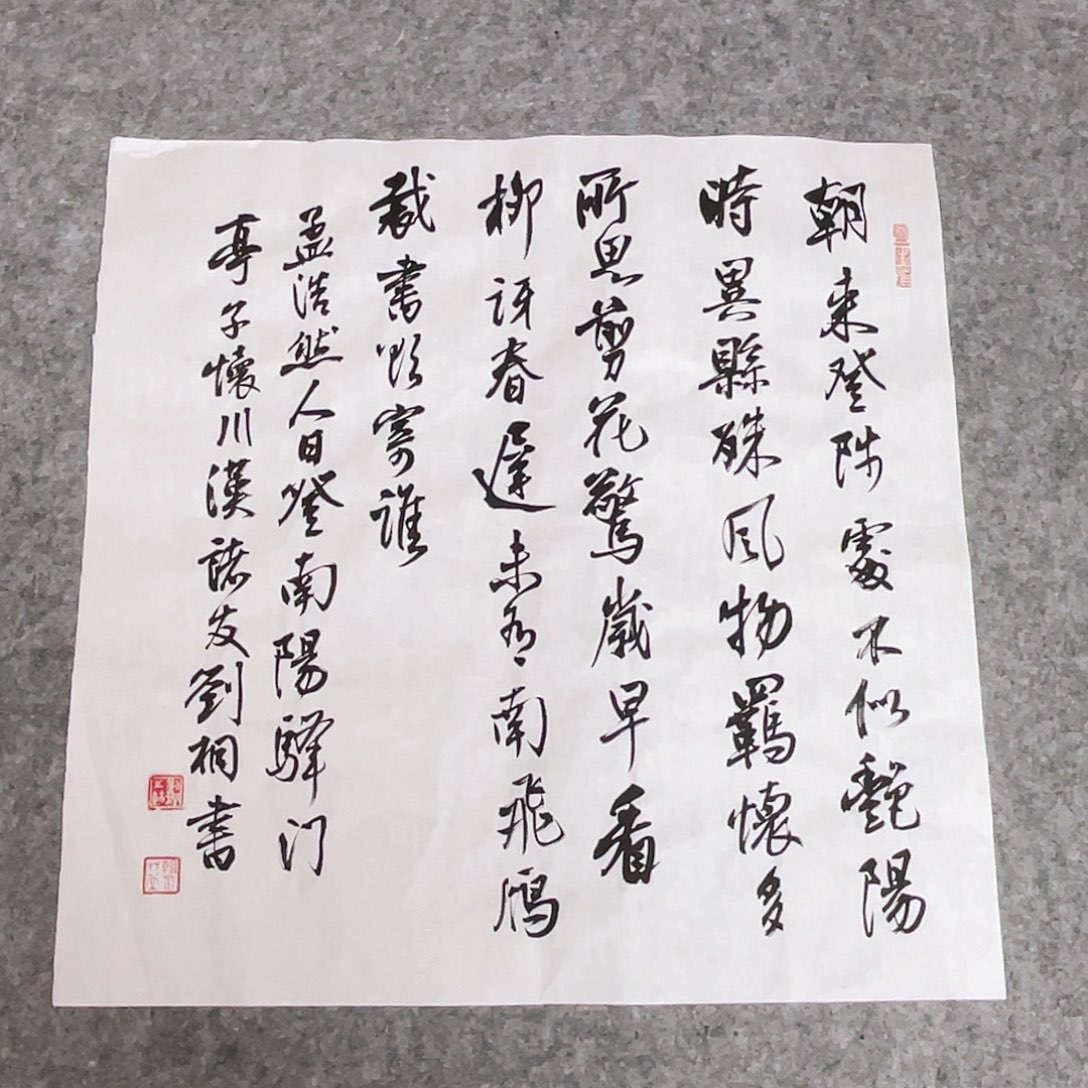 朝來登陟處不似艷陽
時異縣殊風物羈懷多
所思剪花驚歲早看
柳訝春遲未有南飛鴈
裁書欲寄誰
孟浩然人日登南陽驛门
亭子懷川漢諸友劉桐書